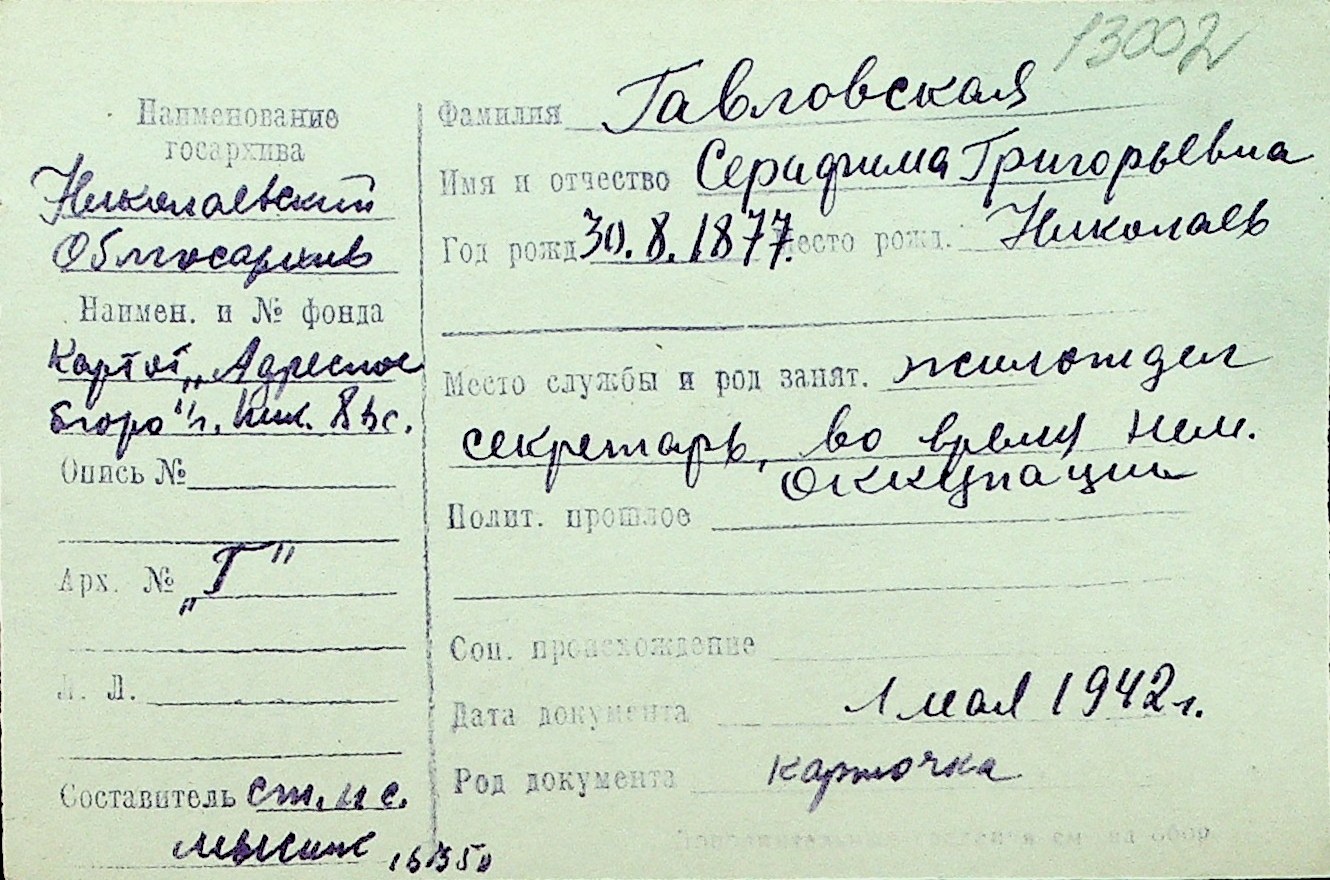 13002
Наименование
госархива
Николаевский
Облгосархив
Наимен. и № фонда
Картот. „Адресное
бюро" г. Ник.
Опись №
Арх. № „Г"
Л. Л.
Составитель ст. н с.
Фамилия Гавловская
Имя и отчество Серафима Григорьевна
Год рожд 30.8.1877. Место рожд. Николаев
Место службы и род занят. жилотдел
секретарь, во время нем.
оккупации
Полит. прошлое
Соц. происхождение
Дата документа 1 мая 1942 г.
Род документа карточка
Дополнительные сведения см. на обор